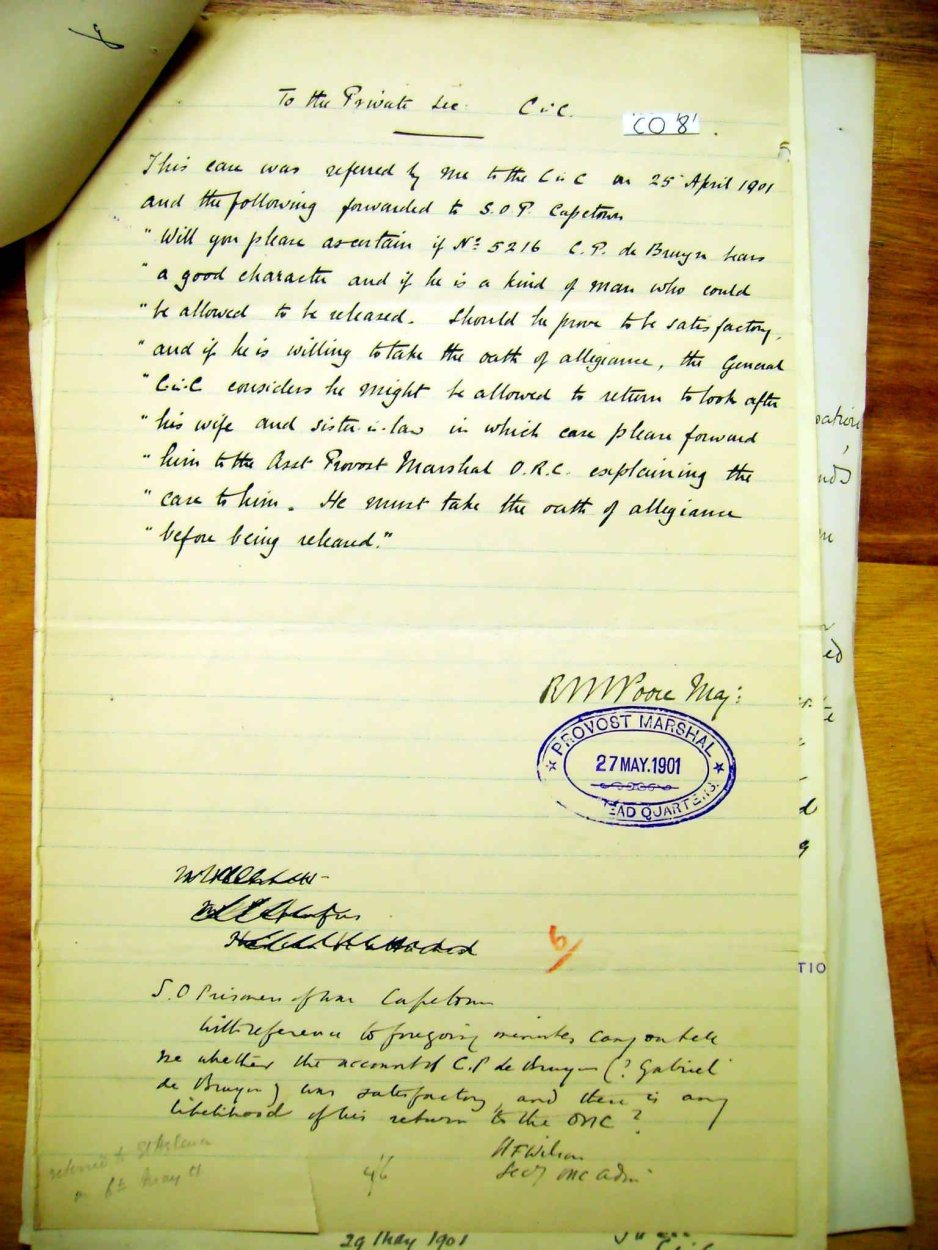 To the Private Sec: C-i-C.
'CO '8'
5
This case was referred by me to the C in C on 25 April 1901
and the following forwarded to S.O.P. Capetown
"Will you please ascertain if No 5216 C.P. de Bruyn bears
"a good character and if he is a kind of man who could
"be allowed to be released. Should he prove to be satisfactory,
"and if he is willing to take the oath of allegiance, the General
"C-in-C considers he might be allowed to return to look after
"his wife and sister-in-law in which case please forward
"him to the Asst Provost Marshal O.R.C. explaining the
"case to him. He must take the oath of allegiance
"before being released."
R M Poore Maj:
PROVOST MARSHAL
27 MAY. 1901
HEAD QUARTERS.
6/
S.O Prisoners of war Capetown
With reference to foregoing minutes can you tell
me whether the account of C.P de Bruyn (? Gabriel
de Bruyn) was satisfactory and there is any
likelihood of his return to the ORC?
HFWilson
Secy ORC Adm
referred to St Helena
on 6th May 01
29 May 1901
TIO